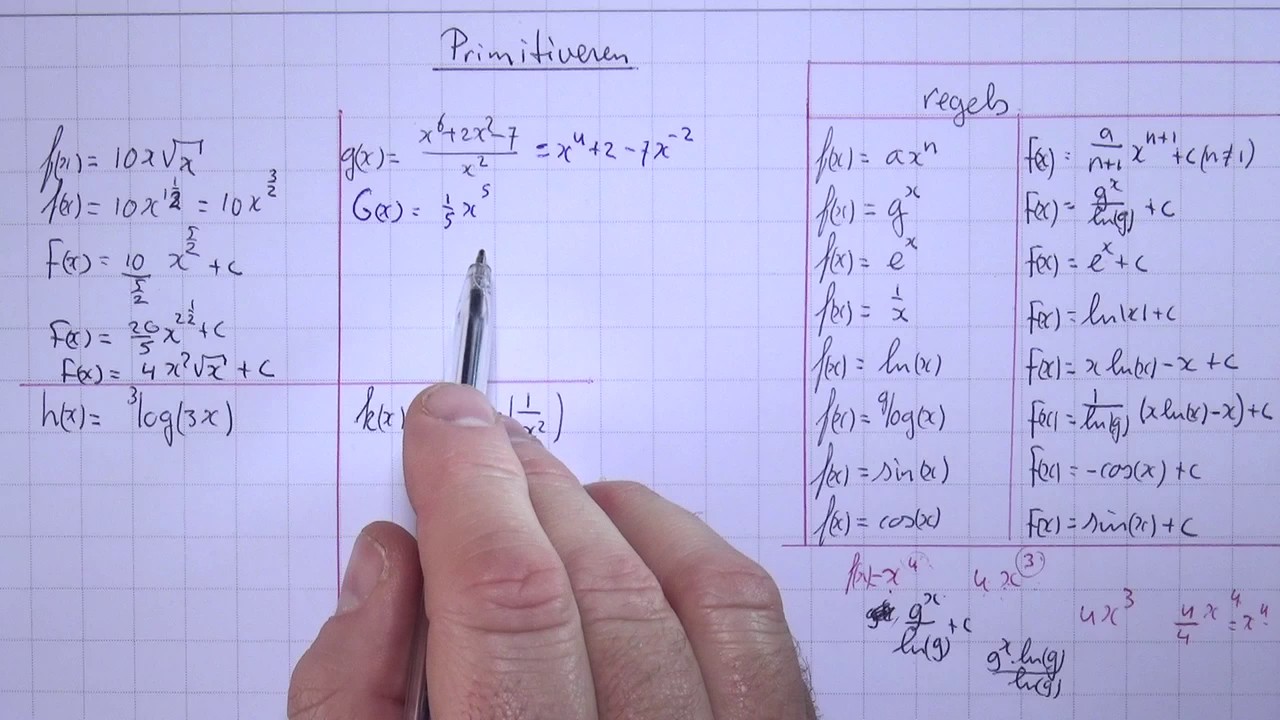 Primitiveren
f(x) = 10x√x
f(x) = 10x^{1½} = 10x^{3/2}
F(x) = 10/(5/2) x^{5/2} + c
F(x) = 20/5 x^{2½} + c
F(x) = 4x²√x + c
g(x) = (x⁶+2x²-7)/x² = x⁴ + 2 - 7x⁻²
G(x) = 1/5 x⁵
h(x) = ³log(3x)
k(x) (1/x²)
regels
f(x) = axⁿ F(x) = a/(n+1) x^{n+1} + c (n≠1)
f(x) = gˣ F(x) = gˣ/ln(g) + c
f(x) = eˣ F(x) = eˣ + c
f(x) = 1/x F(x) = ln|x| + c
f(x) = ln(x) F(x) = x ln(x) - x + c
f(x) = ᵍlog(x) F(x) = 1/ln(g) (x ln(x) - x) + c
f(x) = sin(x) F(x) = -cos(x) + c
f(x) = cos(x) F(x) = sin(x) + c
f(x) = x⁴ 4x³
gˣ/ln(g) + c
gˣ·ln(g)/ln(g)
4x³ 4/4 x⁴ = x⁴